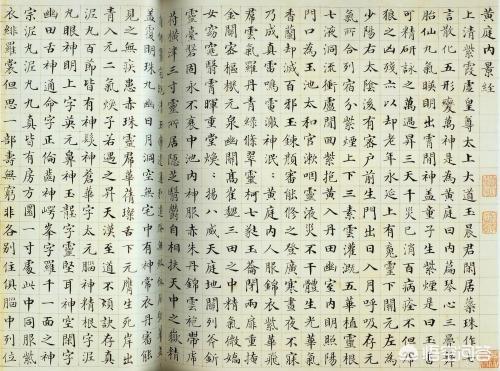 黃庭內景經
上清紫霞虛皇尊太上大道玉晨君閒居蕊珠作七
言散化五形變萬神是為黃庭曰內篇琴心三疊舞
胎仙九氣映明出霄間神蓋童子生紫煙是曰玉書
可精研詠之萬過昇三天千災已消百病痊不憚虎
狼之凶殘亦以却老年永延上有魂靈下關元左為
少陽右太陰後有密戶前生門出日入月呼吸存元
氣所合列宿分紫煙上下三素雲灌溉五華植靈根
七液洞流衝廬間迴紫抱黃入丹田幽室內明照陽
門口為玉池太和官漱咽靈液災不干體生光華氣
香蘭却滅百邪玉鍊顏審能修之登廣寒晝夜不寐
乃成真雷鳴電激神泯泯黃庭內人服錦衣紫華飛
裙雲氣羅丹青綠條翠靈柯七蕤玉籥閉兩扉重掩
金關密樞機元泉幽關高崔巍三田之中精氣微嬌
女窈窕翳霄暉重堂煥煥揚八威天庭地關列斧斤
靈臺盤固永不衰中池內神服赤珠丹錦雲袍帶虎
符橫津三寸靈所居隱芝翳鬱自相扶天中之嶽精
蓋覆明珠九幽日月洞空無宅中有神常衣丹審能
見之無疾患赤珠靈裙華蒨粲舌下元膺生死岸出
青入元二氣煥子若遇之昇天漢至道不煩訣存真
泥丸百節皆有神髮神蒼華字太元腦神精根字泥
丸眼神明上字英元鼻神玉壟字靈堅耳神空閒字
幽田舌神通命字正倫齒神崿峰字羅千一面之神
宗泥丸泥丸九真皆有房方圓一寸處此中同服紫
衣緋羅裳但思一部壽無窮非各別住俱腦中列位